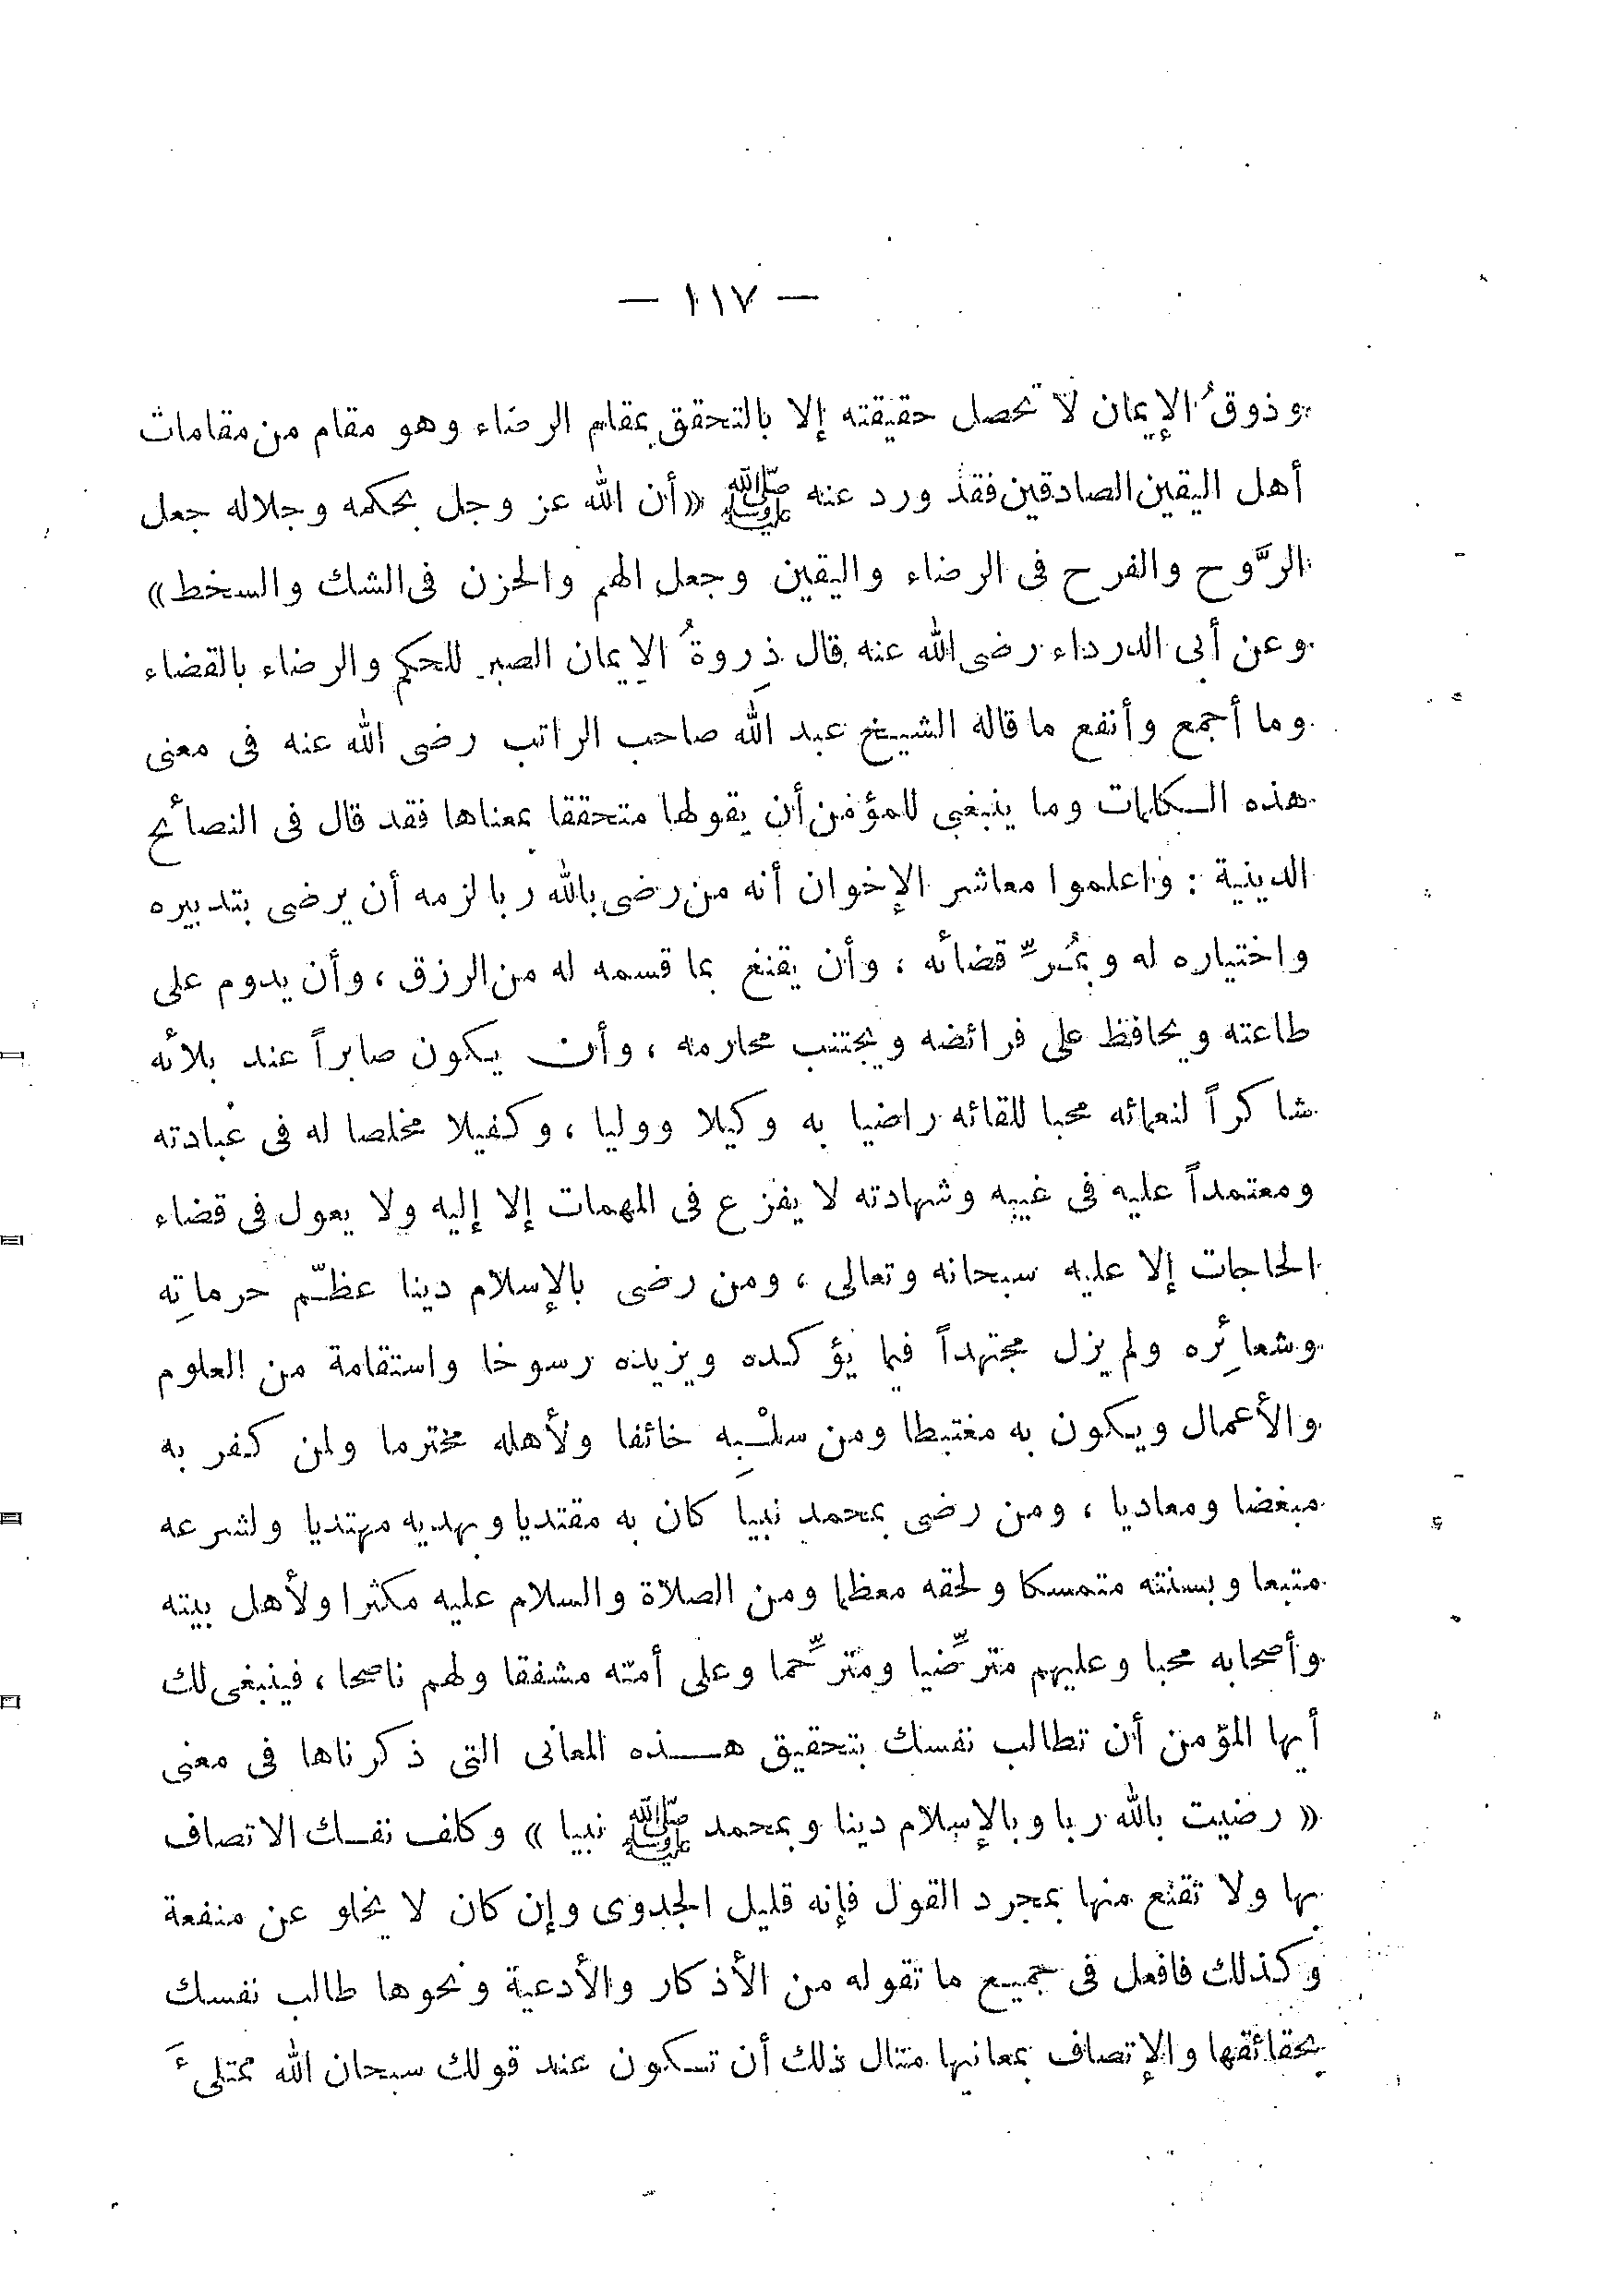 — ١١٧ —
وذوقُ الإيمان لا تحصل حقيقته إلا بالتحقق بمقام الرضاء وهو مقام من مقامات
أهل اليقين الصادقين فقد ورد عنه ﷺ «أن الله عز وجل بحكمه وجلاله جعل
الرَّوح والفرح فى الرضاء واليقين وجعل الهم والحزن فى الشك والسخط»
وعن أبى الدرداء رضى الله عنه قال ذِروةُ الإيمان الصبر للحكم والرضاء بالقضاء
وما أجمع وأنفع ما قاله الشيخ عبد الله صاحب الراتب رضى الله عنه فى معنى
هذه الكلمات وما ينبغى للمؤمن أن يقولها متحققا بمعناها فقد قال فى النصائح
الدينية : واعلموا معاشر الإخوان أنه من رضى بالله ربا لزمه أن يرضى بتدبيره
واختياره له وبمُرِّ قضائه ، وأن يقنع بما قسمه له من الرزق ، وأن يدوم على
طاعته ويحافظ على فرائضه ويجتنب محارمه ، وأن يكون صابراً عند بلائه
شاكراً لنعمائه محبا للقائه راضيا به وكيلا ووليا ، وكفيلا مخلصا له فى عبادته
ومعتمداً عليه فى غيبه وشهادته لا يفزع فى المهمات إلا إليه ولا يعول فى قضاء
الحاجات إلا عليه سبحانه وتعالى ، ومن رضى بالإسلام دينا عظّم حرماتِه
وشعائِره ولم يزل مجتهداً فيما يؤكده ويزيده رسوخا واستقامة من العلوم
والأعمال ويكون به مغتبطا ومن سلْبِه خائفا ولأهله محترما ولمن كفر به
مبغضا ومعاديا ، ومن رضى بمحمد نبيا كان به مقتديا وبهديه مهتديا ولشرعه
متبعا وبسنته متمسكا ولحقه معظما ومن الصلاة والسلام عليه مكثرا ولأهل بيته
وأصحابه محبا وعليهم مترضِّيا ومترحِّما وعلى أمته مشفقا ولهم ناصحا ، فينبغى لك
أيها المؤمن أن تطالب نفسك بتحقيق هذه المعانى التى ذكرناها فى معنى
« رضيت بالله ربا وبالإسلام دينا وبمحمد ﷺ نبيا » وكلف نفسك الاتصاف
بها ولا تقنع منها بمجرد القول فإنه قليل الجدوى وإن كان لا يخلو عن منفعة
وكذلك فافعل فى جميع ما تقوله من الأذكار والأدعية ونحوها طالب نفسك
بحقائقها والإتصاف بمعانيها مثال ذلك أن تكون عند قولك سبحان الله ممتلىءَ